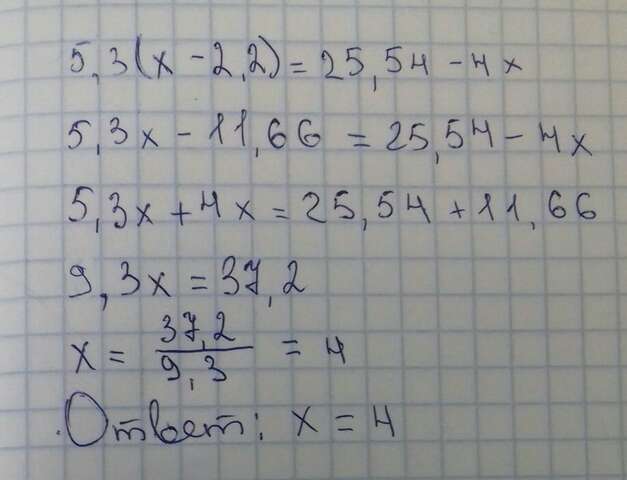 5,3(x - 2,2) = 25,54 - 4x
5,3x - 11,66 = 25,54 - 4x
5,3x + 4x = 25,54 + 11,66
9,3x = 37,2
x = 37,2/9,3 = 4
Ответ: x = 4